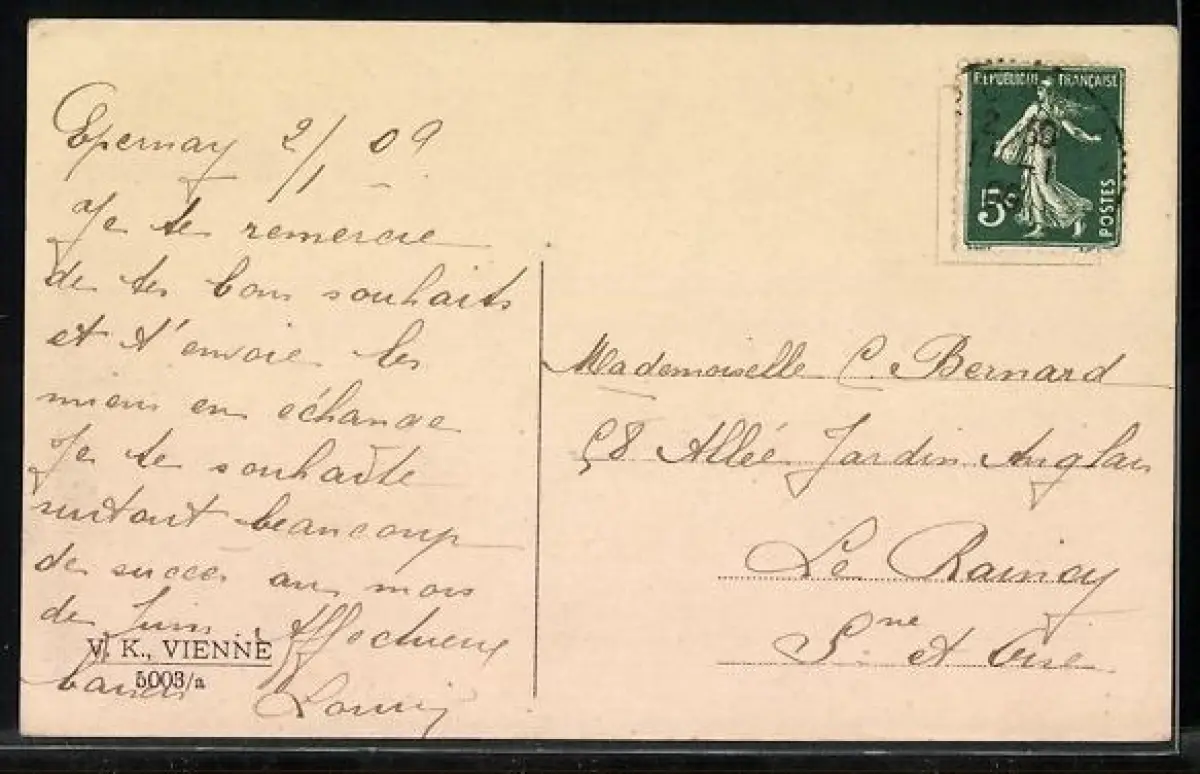 Epernay 2/1 09
Je te remercie
de tes bons souhaits
et t'envoie les
miens en échange
Je te souhaite
surtout beaucoup
de succes au mois
de Juin. Affectueux
baisers
V. K., VIENNE
5003/a
RÉPUBLIQUE FRANÇAISE
5c
POSTES
Mademoiselle C. Bernard
58 Allée Jardin Anglais
Le Raincy
Sne et Oise